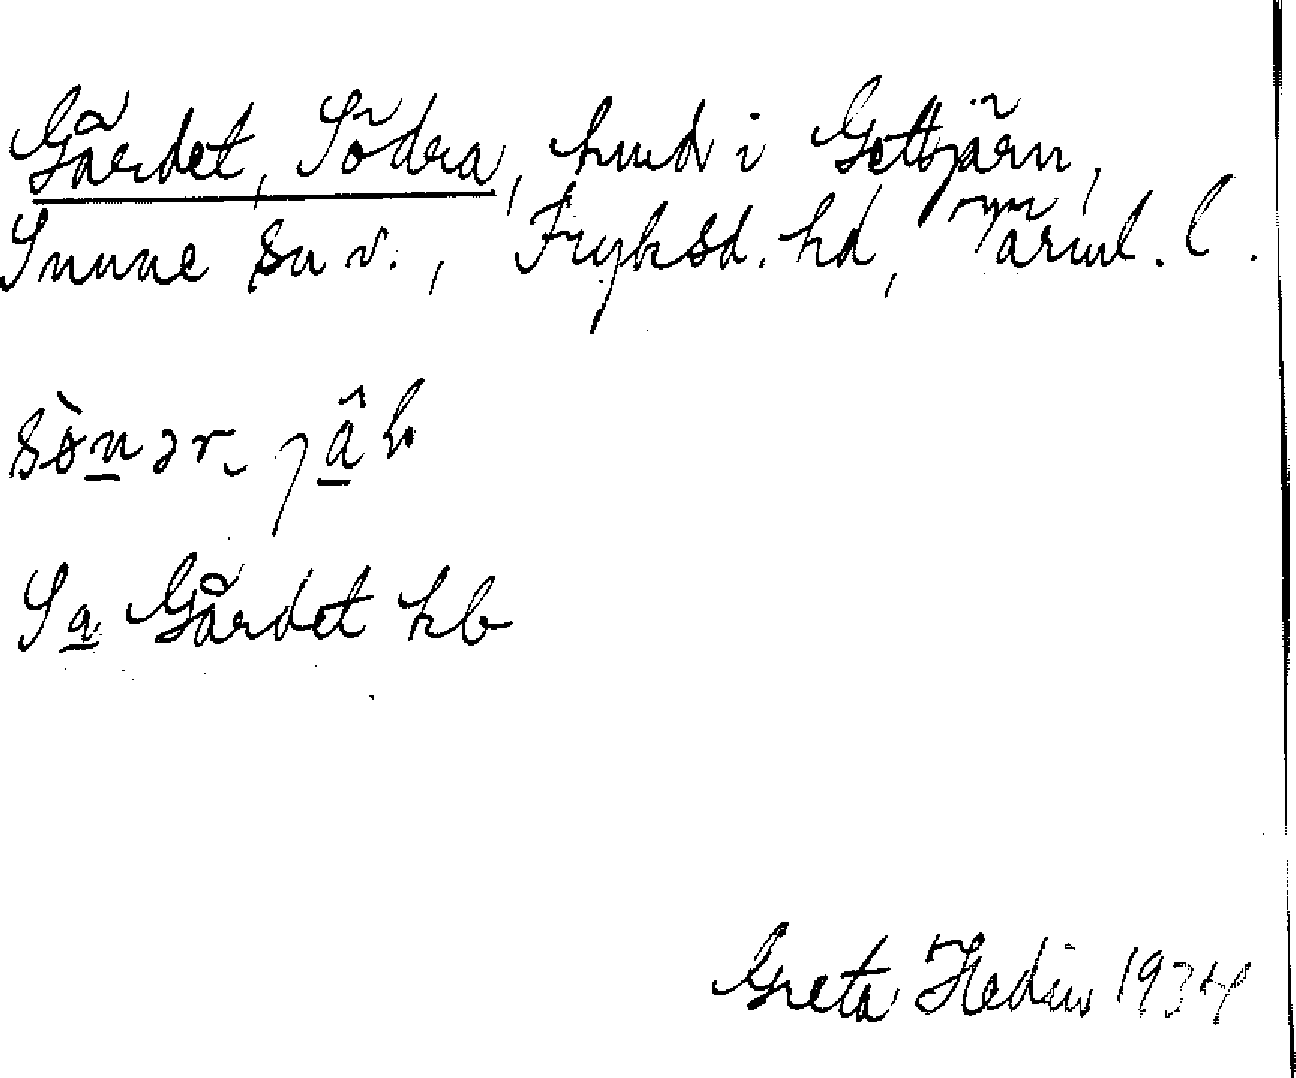 Gårdet, Södra, hmd i Gettjärn,
Sunne sn v., Fryksd. hd, Värml. l.
Sa Gårdet hb
Greta Hedin 1934